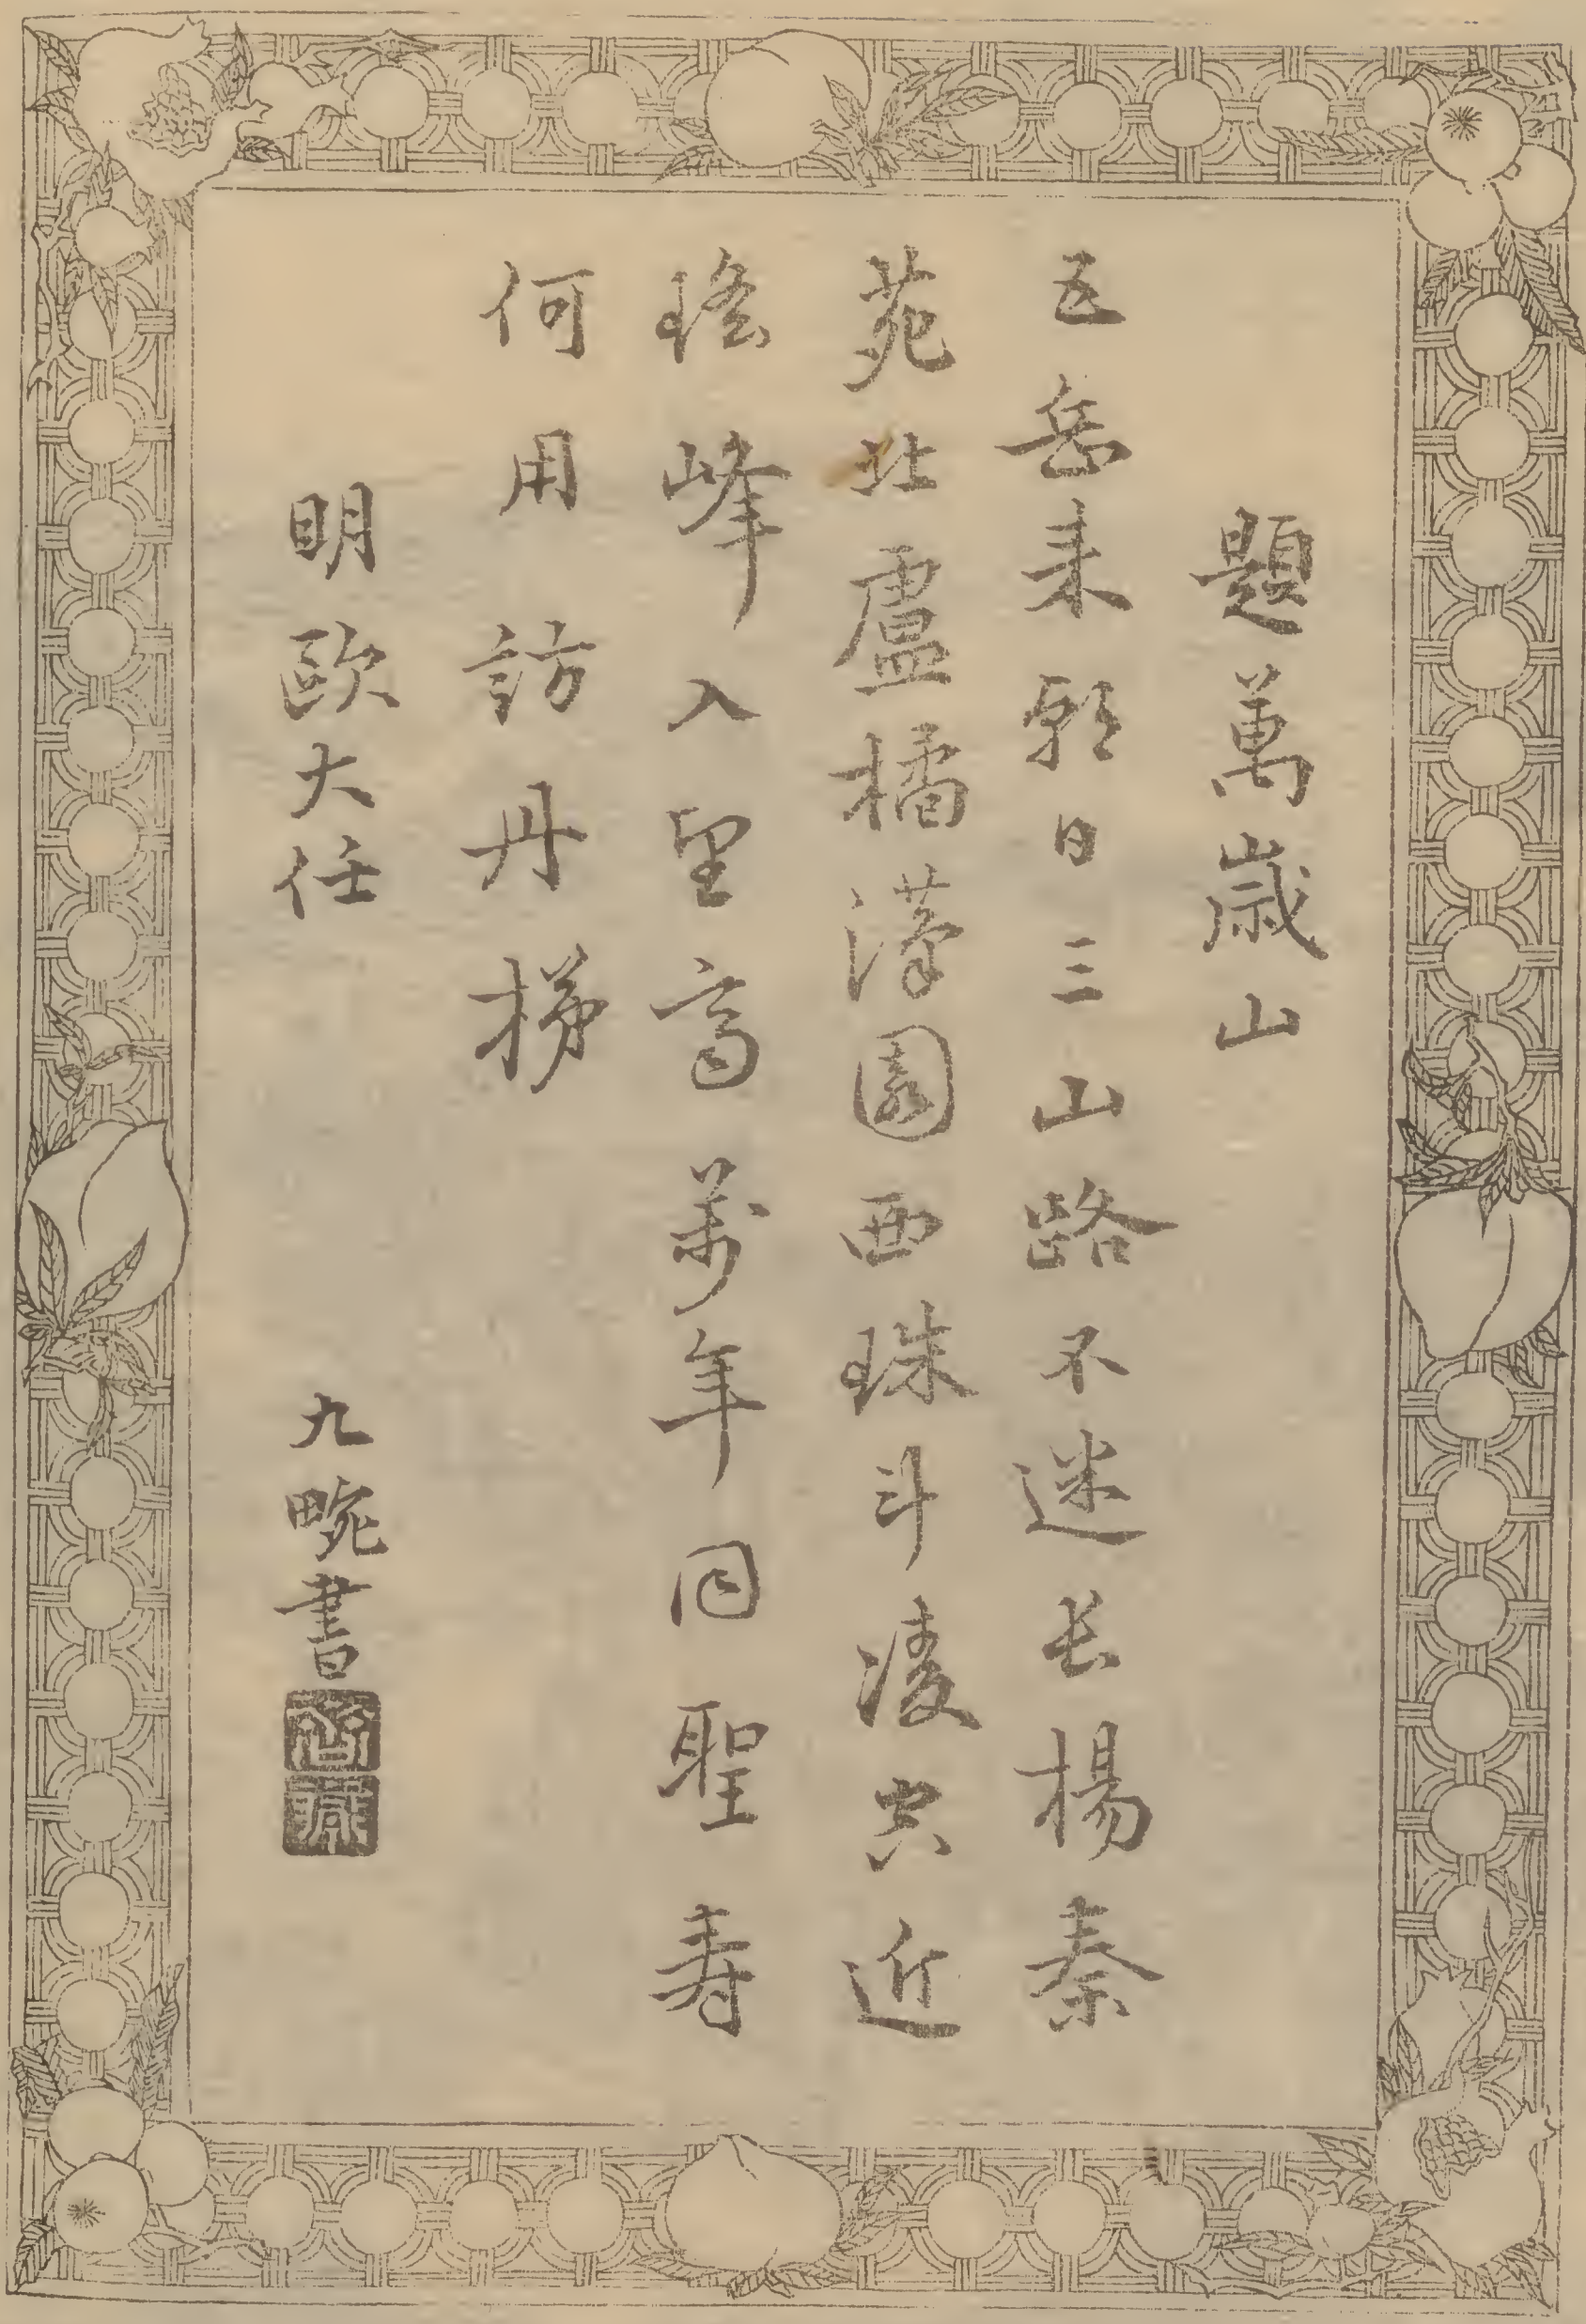 題萬歲山
五岳来朝日三山路不迷长楊秦
苑北盧橘漢園西珠斗凌空近
瑤峰入望高萬年同聖寿
何用訪丹梯
明歐大任
九畹書